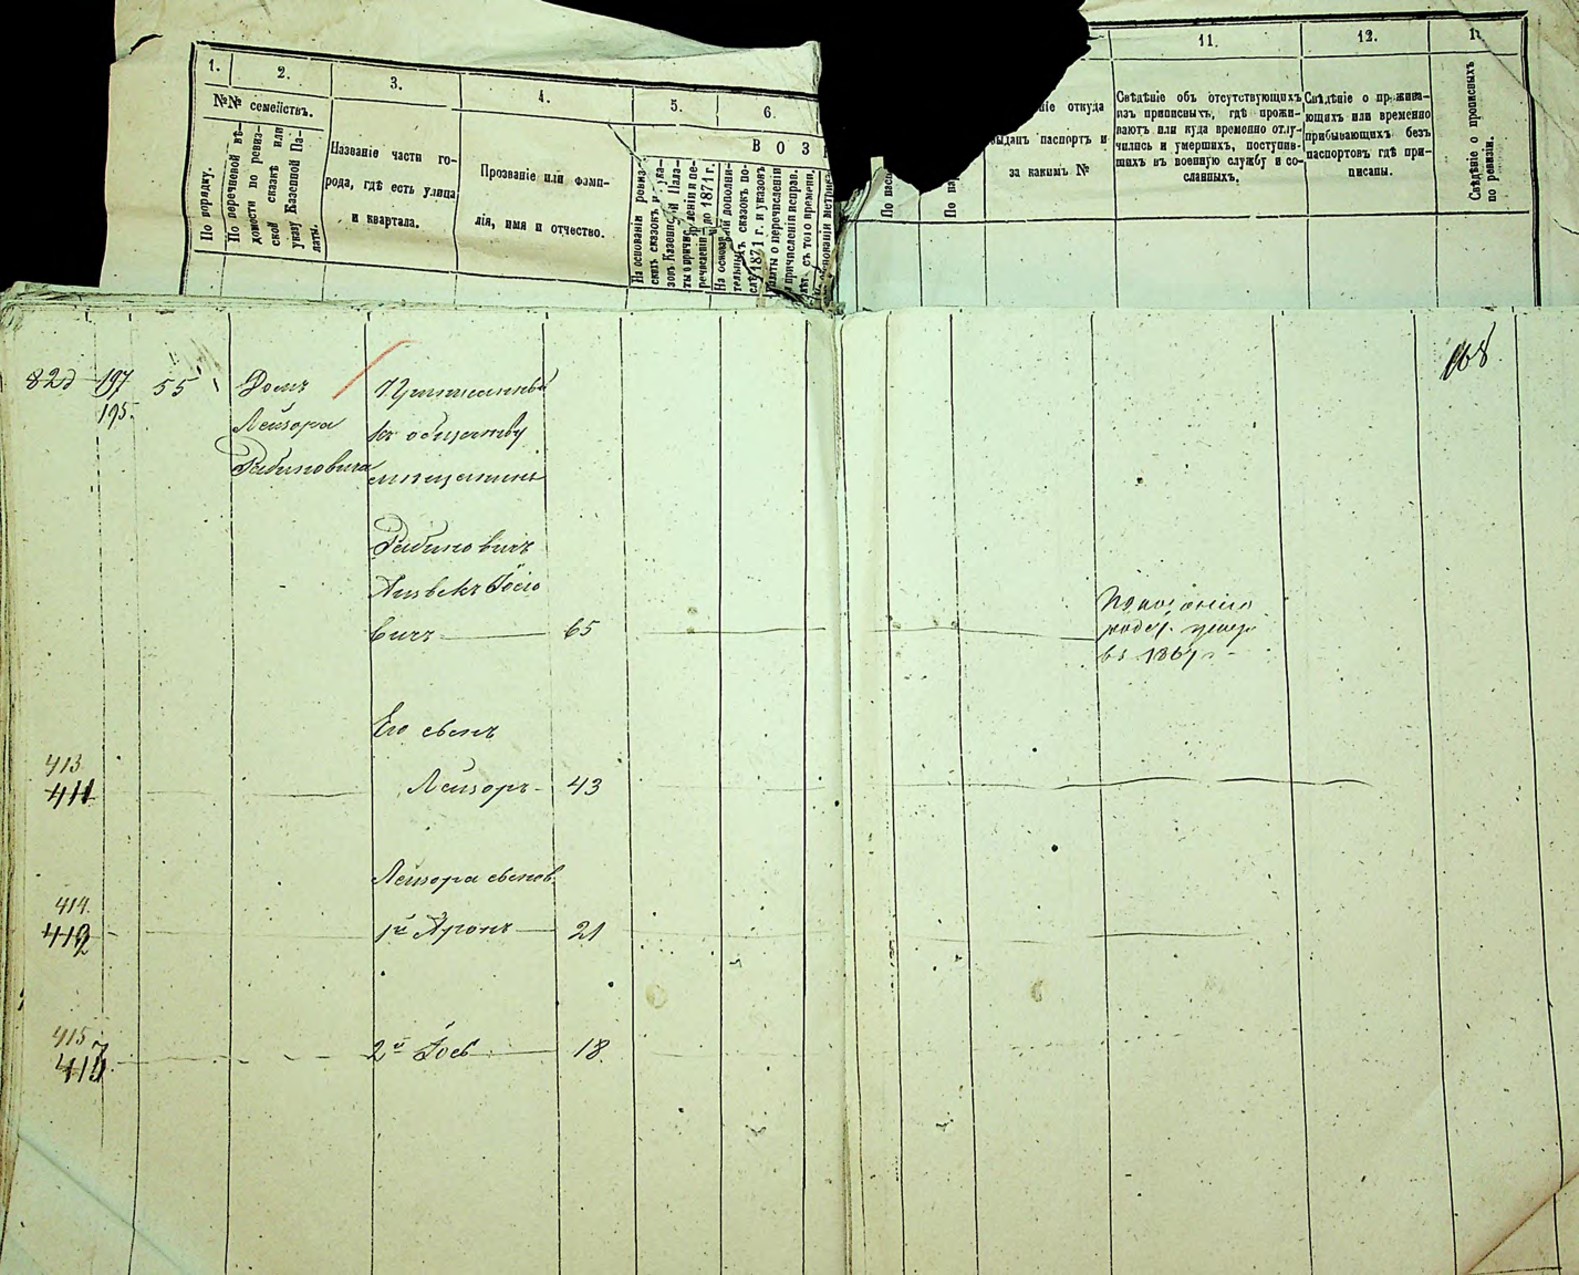 1.
2.
3.
4.
5.
6.
11.
12.
№№ семействъ.
По порядку.
По перечневой вѣ-
домости по ревиз-
ской сказкѣ или
указу Казенной Па-
латы.
Названіе части го-
рода, гдѣ есть улица
и квартала.
Прозваніе или фами-
лія, имя и отчество.
В О З
На основаніи ревиз-
скихъ сказокъ и ука-
зовъ Казенной Пала-
до 1871 г.
дополни-
сказокъ по-
1871 г. и указовъ
о перечисленіи
причисленіи исправ.
съ того времени,
откуда
выданъ паспортъ и
за какимъ №
Свѣдѣніе объ отсутствующихъ
изъ приписныхъ, гдѣ прожи-
ваютъ или куда временно отлу-
чились и умершихъ, поступив-
шихъ въ военную службу и со-
сланныхъ.
Свѣдѣніе о прожива-
ющихъ или временно
прибывающихъ безъ
паспортовъ гдѣ при-
писаны.
Свѣдѣніе о прописныхъ
по ревизіи.
168
82д 197 55 Домъ
195.
Лейзора
Рабиновича
Приписанный
къ обществу
мѣщанинъ
Рабиновичъ
Іосіо
вичъ 65
умер
въ 186
Его сынъ
413
411 Лейзоръ 43
Лейзора сынов.
414.
412 1й Аронъ 21
415
413 2й Іось 18